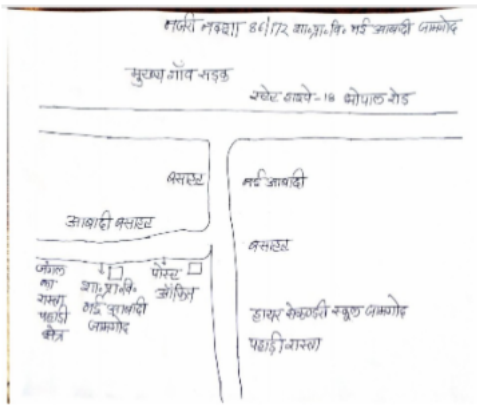 नजरी नक्शा 86/172 शा॰प्रा॰वि॰ नई आबादी जामगोद
मुख्य गाँव सड़क
स्टेट हाइवे-18 भोपाल रोड
बसाहट
नई आबादी
आबादी बसाहट
बसाहट
जंगल
का
रास्ता
पहाड़ी
क्षेत्र
शा॰प्रा॰वि॰
नई आबादी
जामगोद
पोस्ट
ऑफिस
हायर सेकण्डरी स्कूल जामगोद
पहाड़ी रास्ता